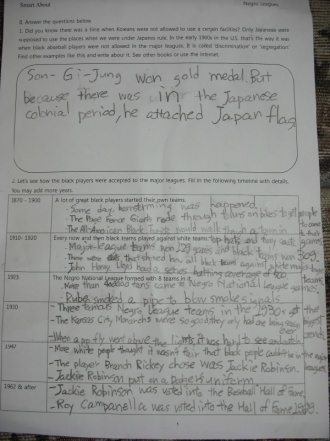 Smart About
Negro Leagues
B. Answer the questions below.
1. Did you know there was a time when Koreans were not allowed to use a certain facility? Only Japanese were
supposed to use the places when we were under Japan's rule. In the early 1900s in the U.S. that's the way it was
when black baseball players were not allowed in the major league. It is called 'discrimination' or 'segregation'.
Find other examples like this and write about it. See other books or use the internet.
Son-Gi-Jung won gold medal. But
because there was in the Japanese
colonial period, he attached Japan flag
2. Let's see how the black players were accepted to the major leagues. Fill in the following timeline with details.
You may add more years.
1870 - 1900
A lot of great black players started their own teams.
- Some day, barnstorming was happened.
- The Page Fence Giants rode through towns on bikes to get people to come
- The All-American Black
1910- 1920
Every now and then black teams played against white teams
- Major-league teams won 129 games and black teams won 309.
- John Henry Lloyd had a batting average of
1923
The Negro National League formed with 8 teams in it.
- More than 400000 fans came to Negro National League games.
- Rube smoked a pipe to blow smoke signals.
1930
- Three famous Negro League teams in the 1930s
- The Kansas City Monarchs were so good they only had one losing season
- When a pop fly went above the lights, it was hard to see and catch
1947
- More white people thought it wasn't fair that black people couldn't be in the major league.
- The player Branch Rickey chose was Jackie Robinson.
- Jackie Robinson put on a Dodgers uniform.
1962 & after
- Jackie Robinson was voted into the Baseball Hall of Fame.
- Roy Campanella was voted into the Hall of Fame 1969.